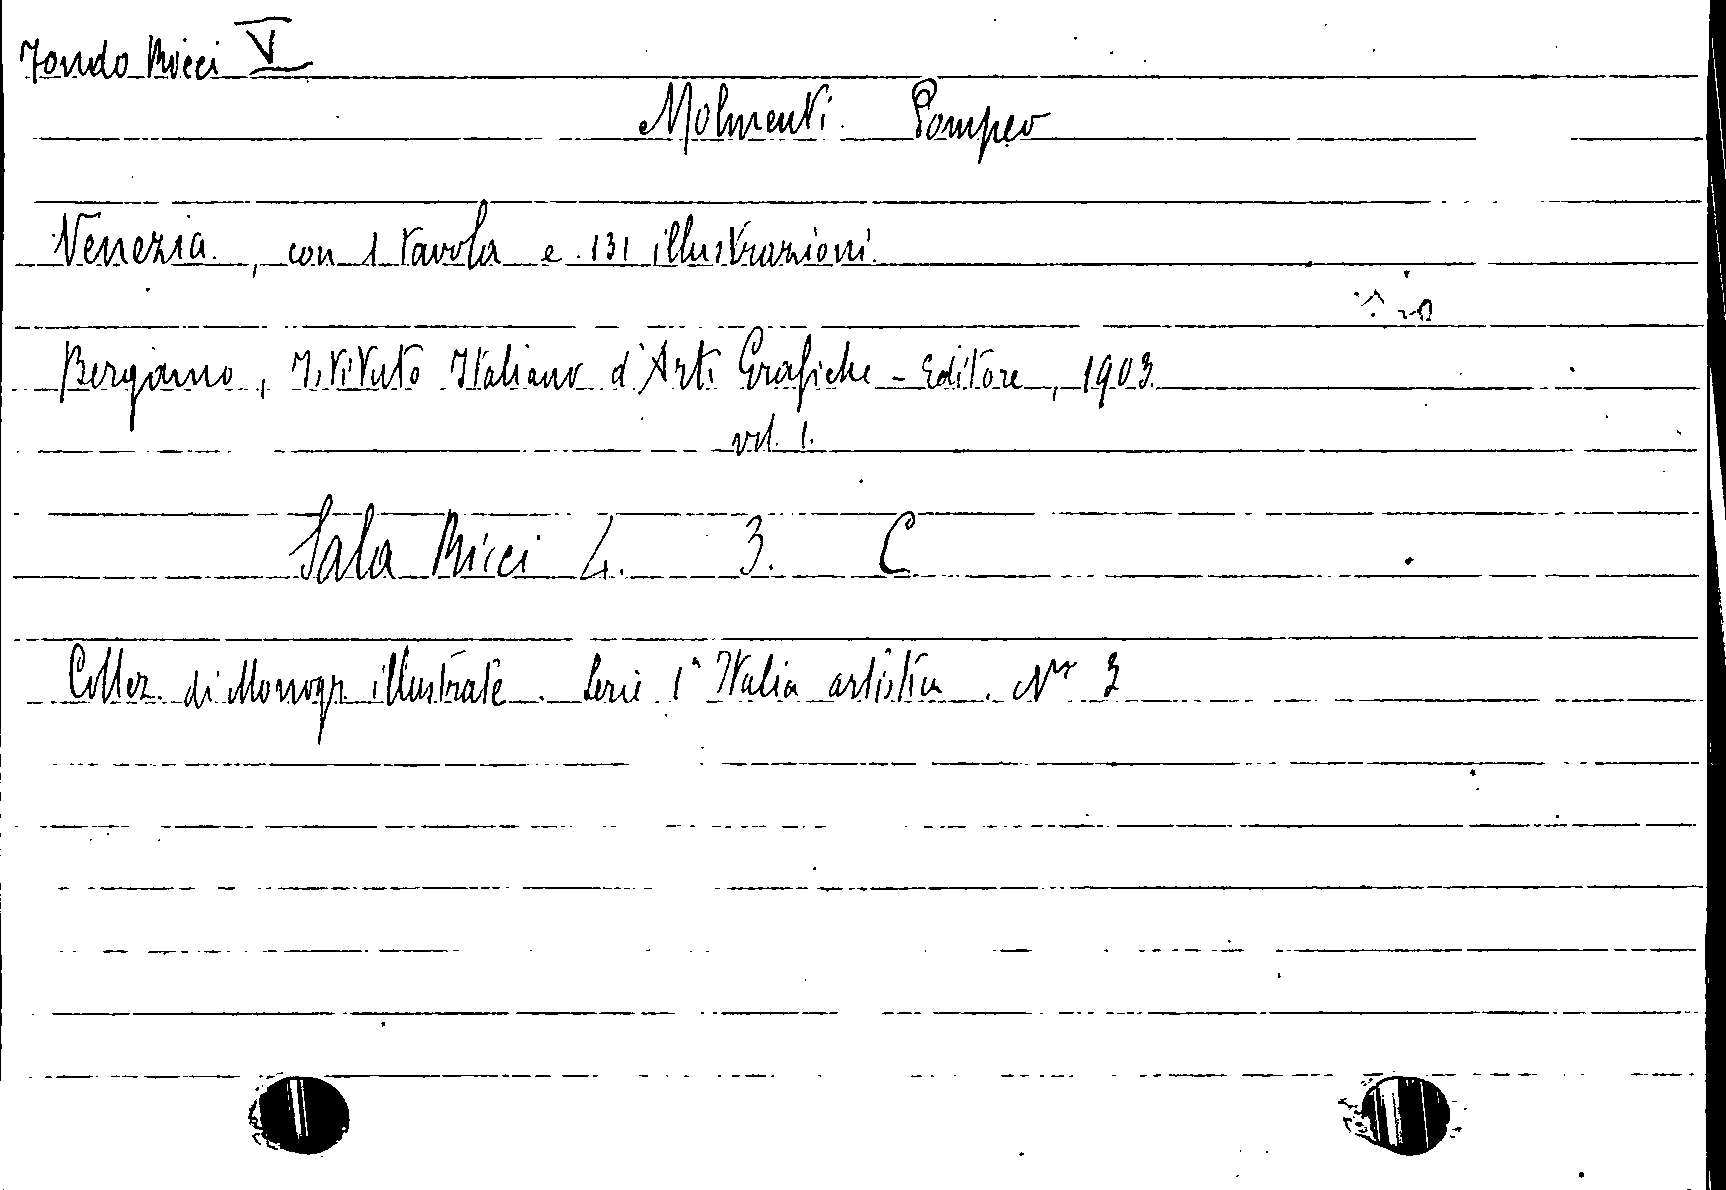 Fondo Ricci V
Molmenti Pompeo
Venezia, con 1 tavola e 131 illustrazioni.
Bergamo, Istituto Italiano d'Arti Grafiche - Editore, 1903.
vol. 1.
Sala Ricci 4. 3. C
Collez. di Monogr. illustrate. Serie 1ª Italia artistica. Nº 3